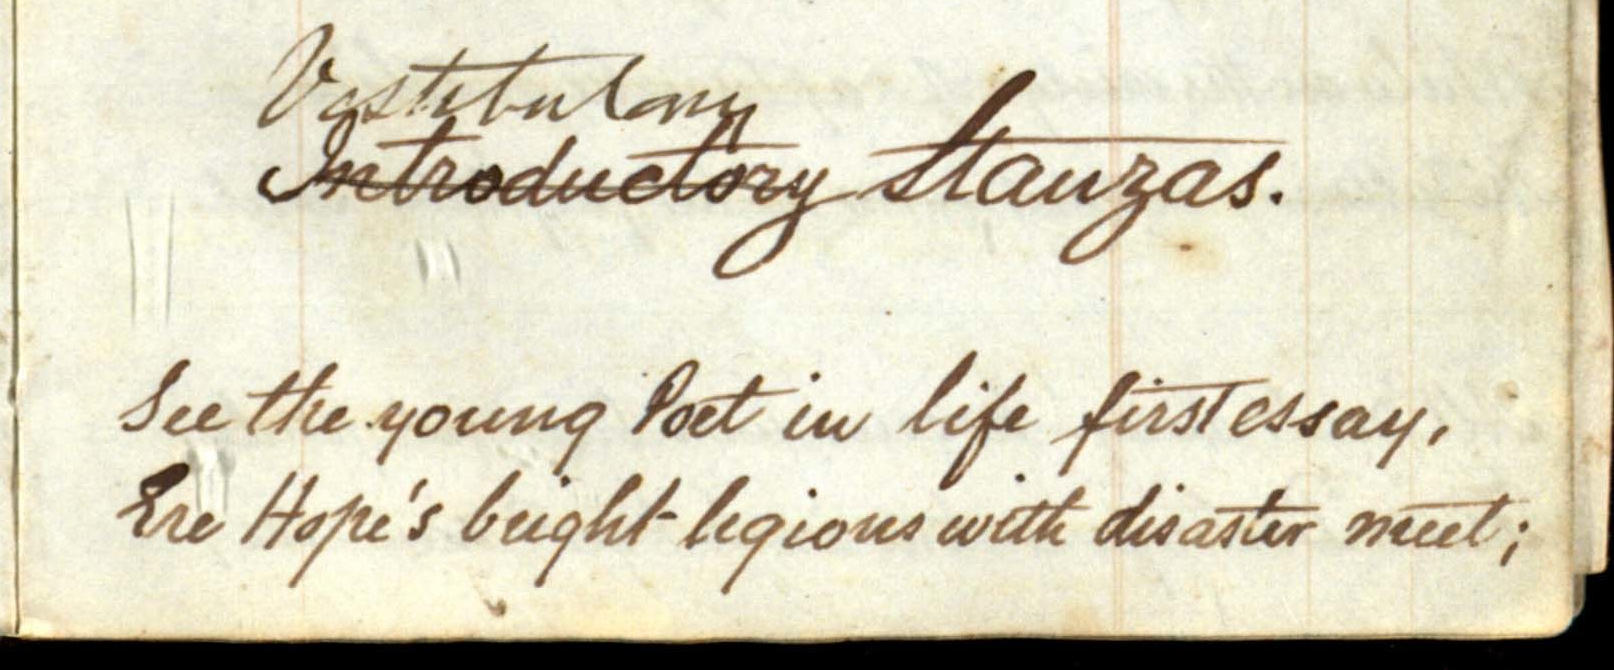 Vestibulary
Introductory Stanzas.
See the young Poet in life first essay,
Ere Hope's bright legions with disaster meet;